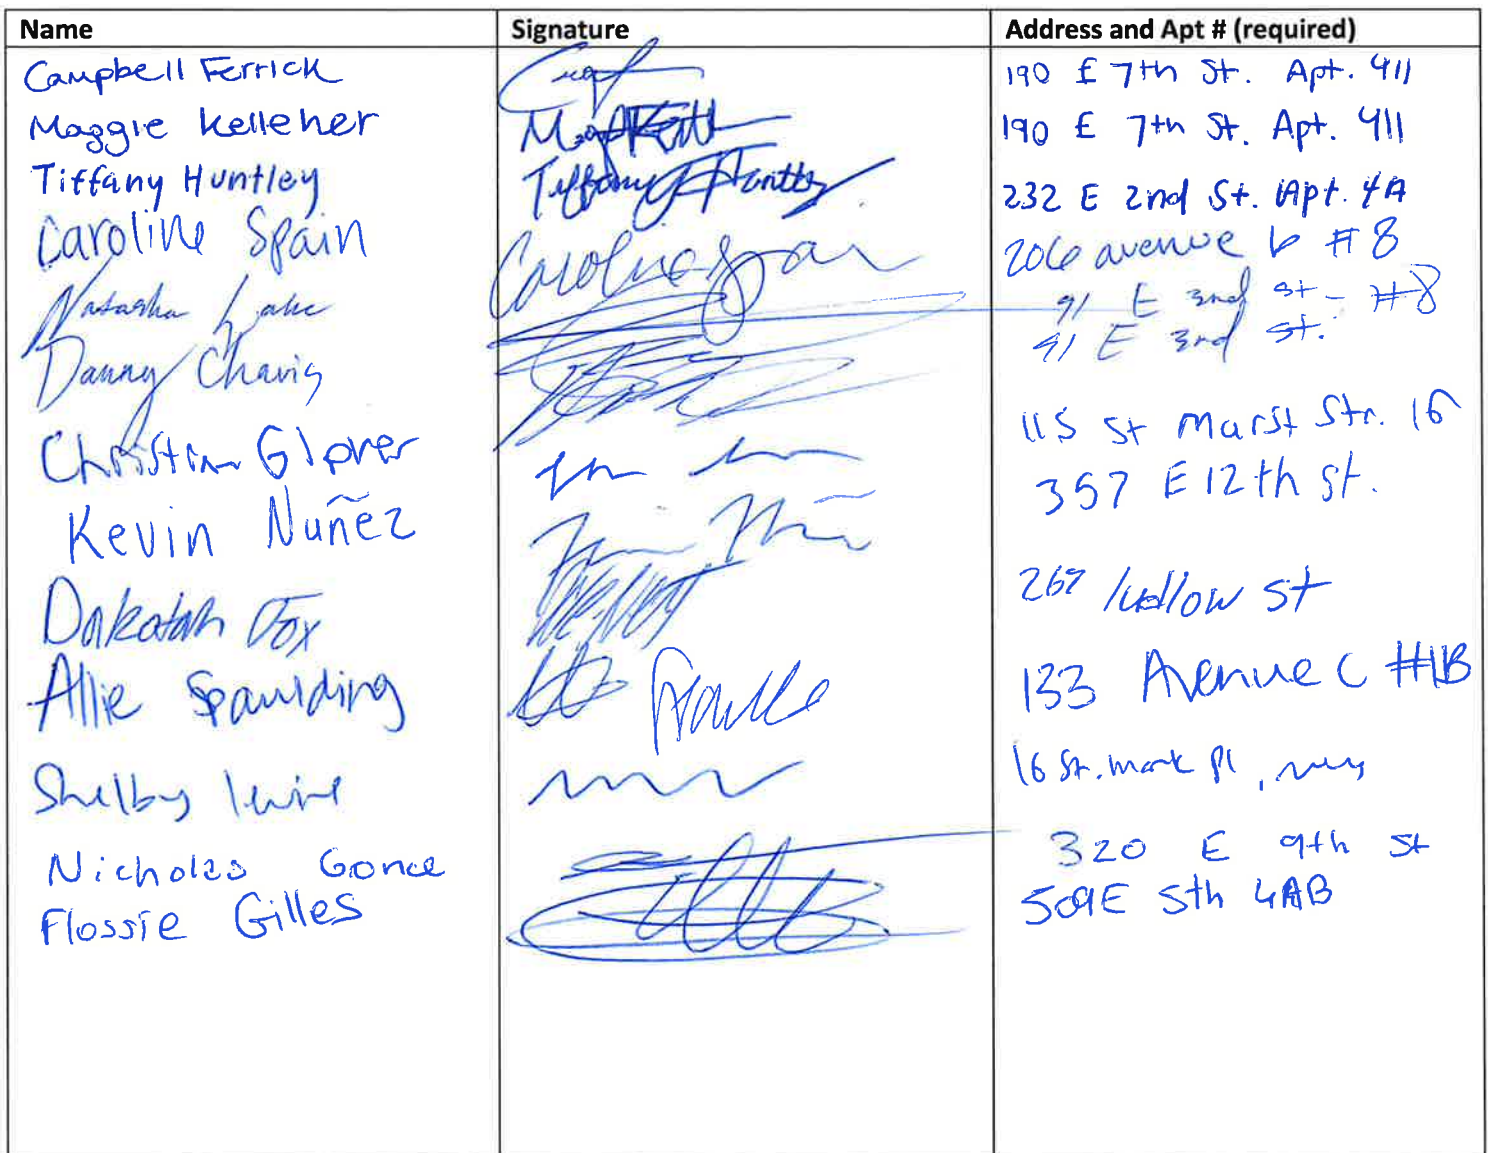 Name Signature Address and Apt # (required)
Campbell Ferrick 190 E 7th St. Apt. 411
Maggie Kelleher 190 E 7th St. Apt. 411
Tiffany Huntley Tiffany Huntley 232 E 2nd St. Apt. 4A
Caroline Spain Caroline Spain 206 avenue b #8
Natasha Lake 91 E 3rd st - #8
Danny Chavis 91 E 3rd st.
Christian Glover 115 St Marst Str. 16
Kevin Nuñez 357 E 12th st.
Dakotah Fox 267 ludlow st
Allie Spaulding 133 Avenue C #1B
Shelby 16 St. mark pl,
Nicholas Gonce 320 E 9th st
Flossie Gilles 509E 5th 4AB